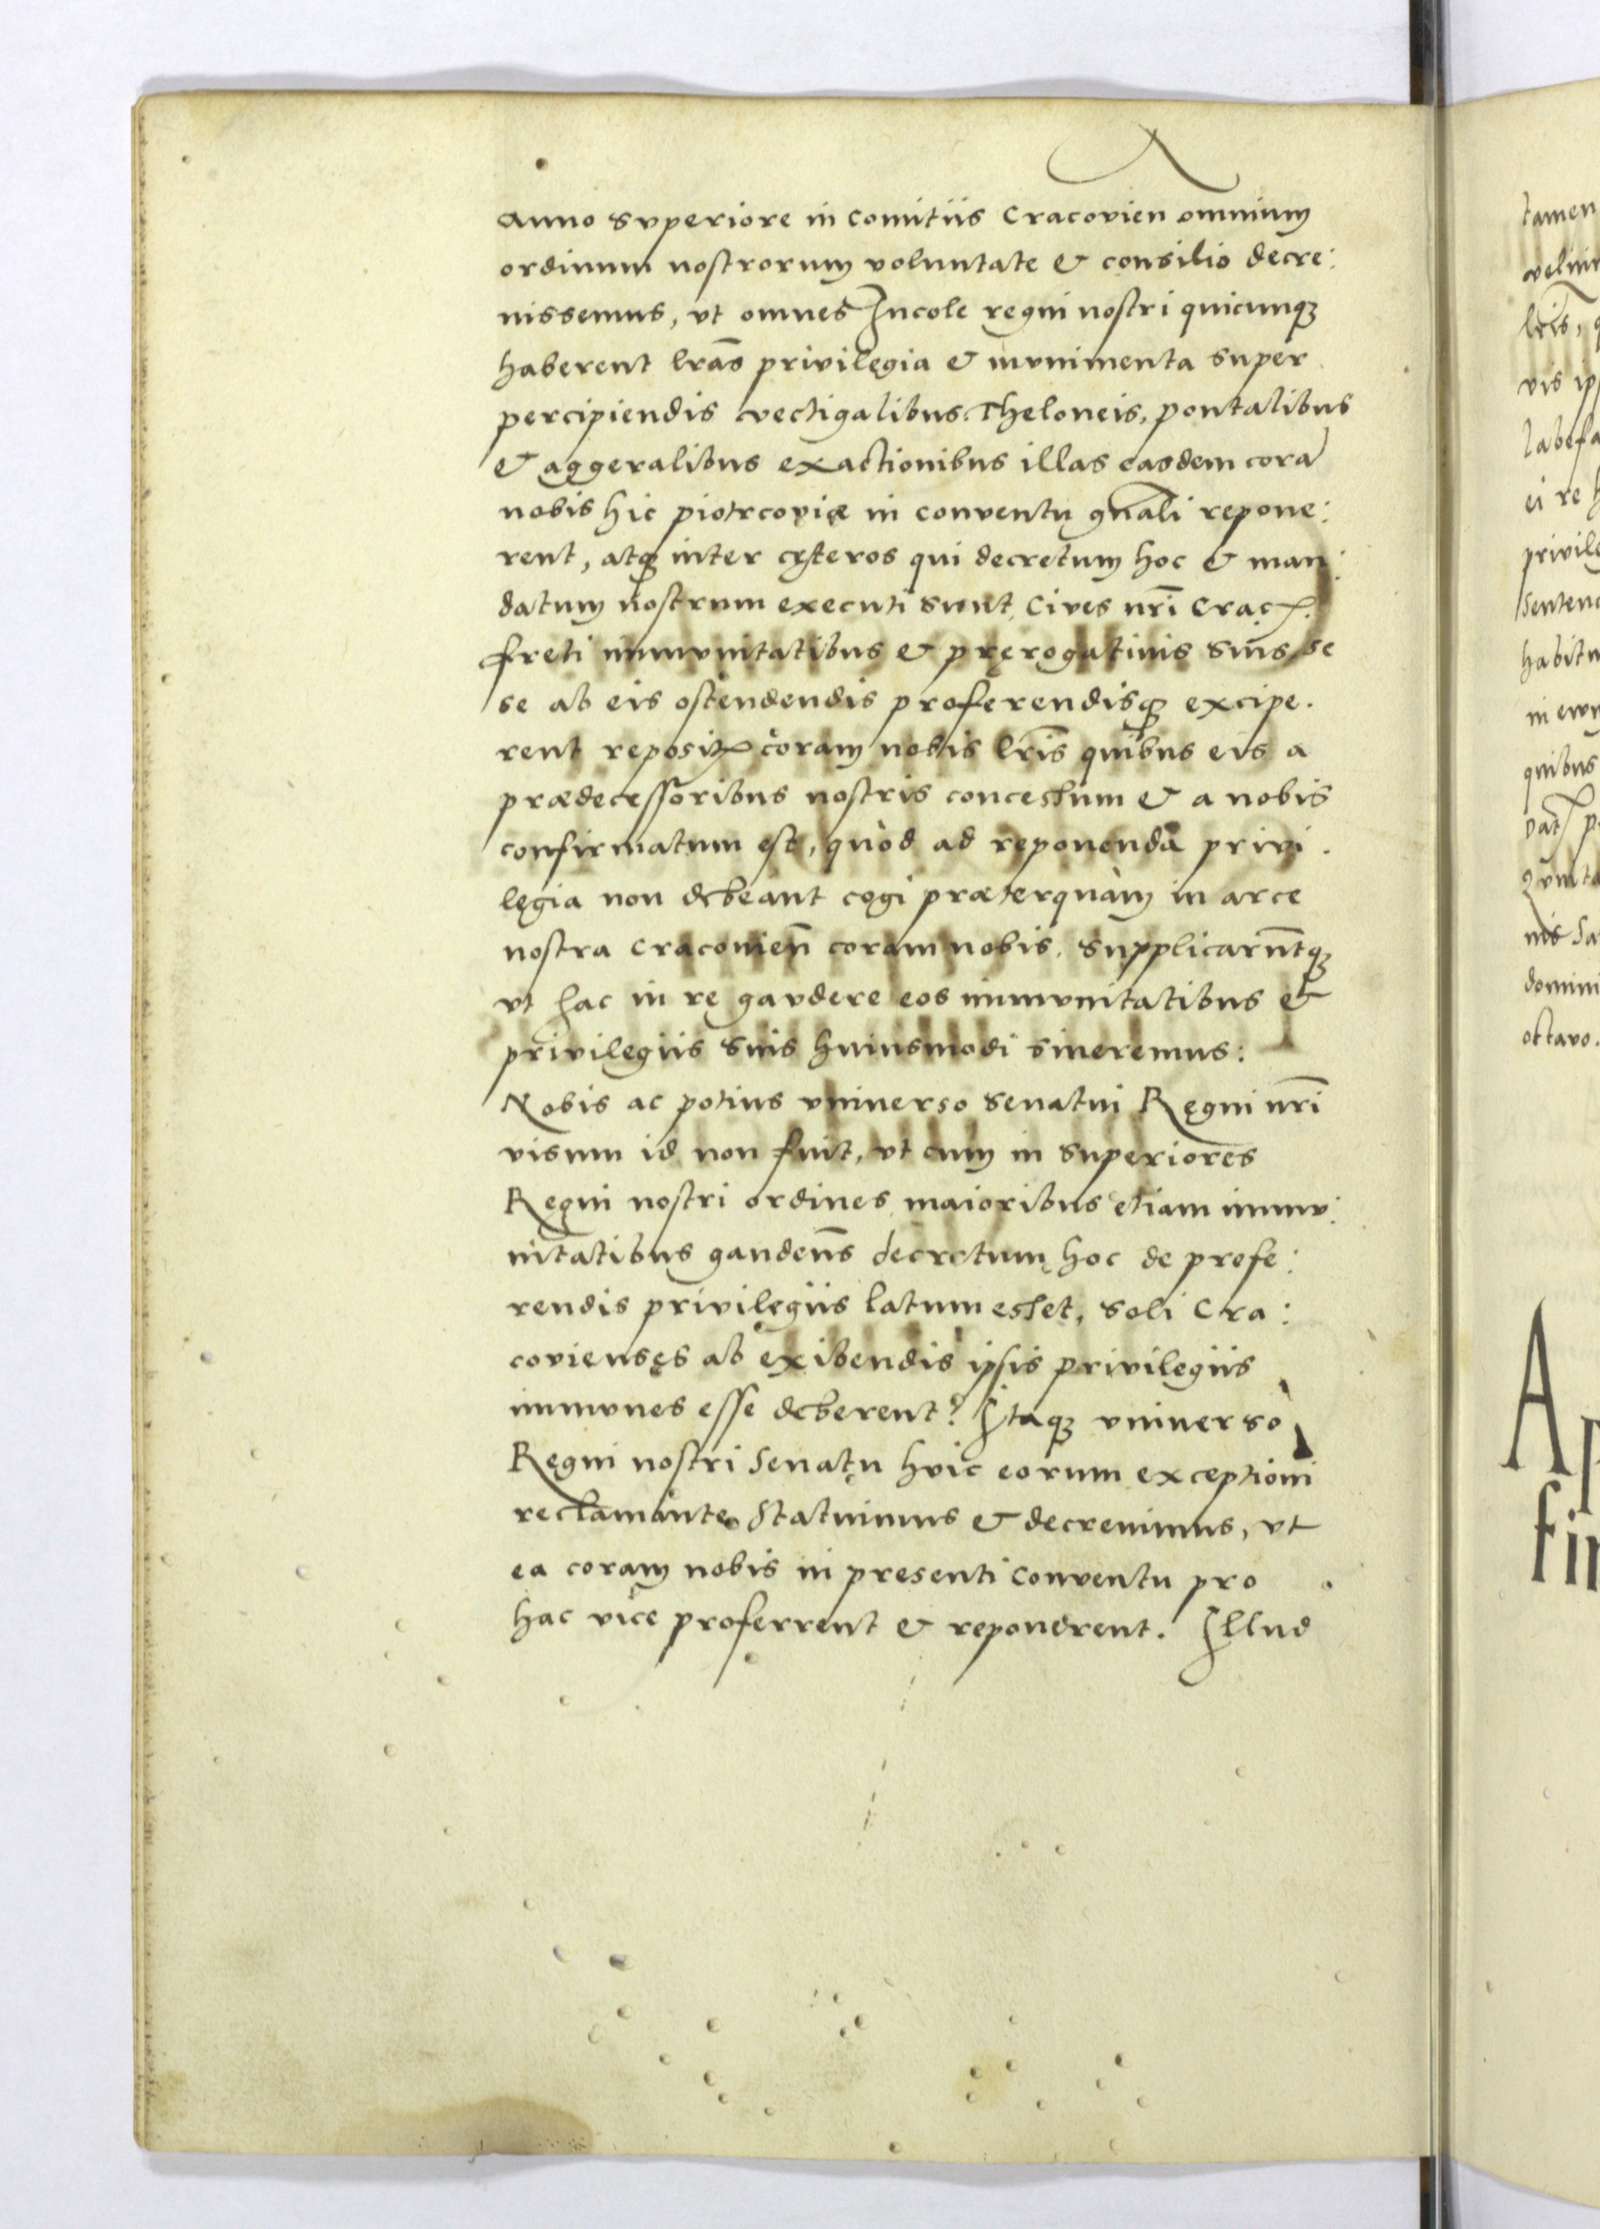 Anno svperiore in Comitiis Cracovien omnium
ordinum nostrorum voluntate & consilio decre:
nissemus, vt omnes Incole regni nostri quicunqȝ
haberent lrās privilegia & mvnimenta super
percipiendis vectigalibus Theloneis, pontalibus
& aggeralibus exactionibus illas easdem corā
nobis hic piotrcoviæ in conventu gn̄ali repone:
rent, atqȝ inter cęteros qui decretum hoc & man:
datum nostrum executi sunt, Cives nr̄i Crac.
freti immvnitatibus & pręrogativis suis, se
se ab eis ostendendis proferendisqȝ excipe.
rent reposit coram nobis lr̄is quibus eis a
prædecessoribus nostris concessum & a nobis
confirmatum est, quòd ad reponenda privi.
legia non debeant cogi præterquàm in arce
nostra Cracovien̄ coram nobis. Supplicarūntqȝ
vt hac in re gavdere eos immvnitatibus &
privilegiis suis huiusmodi sineremus:
Nobis ac potius vniverso senatui Regni nr̄i
visum id non fuit, vt cum in superiores
Regni nostri ordines maioribus etiam immv:
nitatibus gauden̄s decretum hoc de profe:
rendis privilegiis latum esset, soli Cra:
covienses ab exibendis ipsis privilegiis
immvnes esse deberent? Itaqȝ vniverso
Regni nostri Senatu hvic eorum exceptioni
reclamante Statuimus & decrevimus, vt
ea coram nobis in presenti conventu pro
hac vice proferrent & reponerent. Illud
tamen
lris,
vis
labefa
ei re
privile
Senten
habitu
quibus
nis
domini
octavo.
A
fi